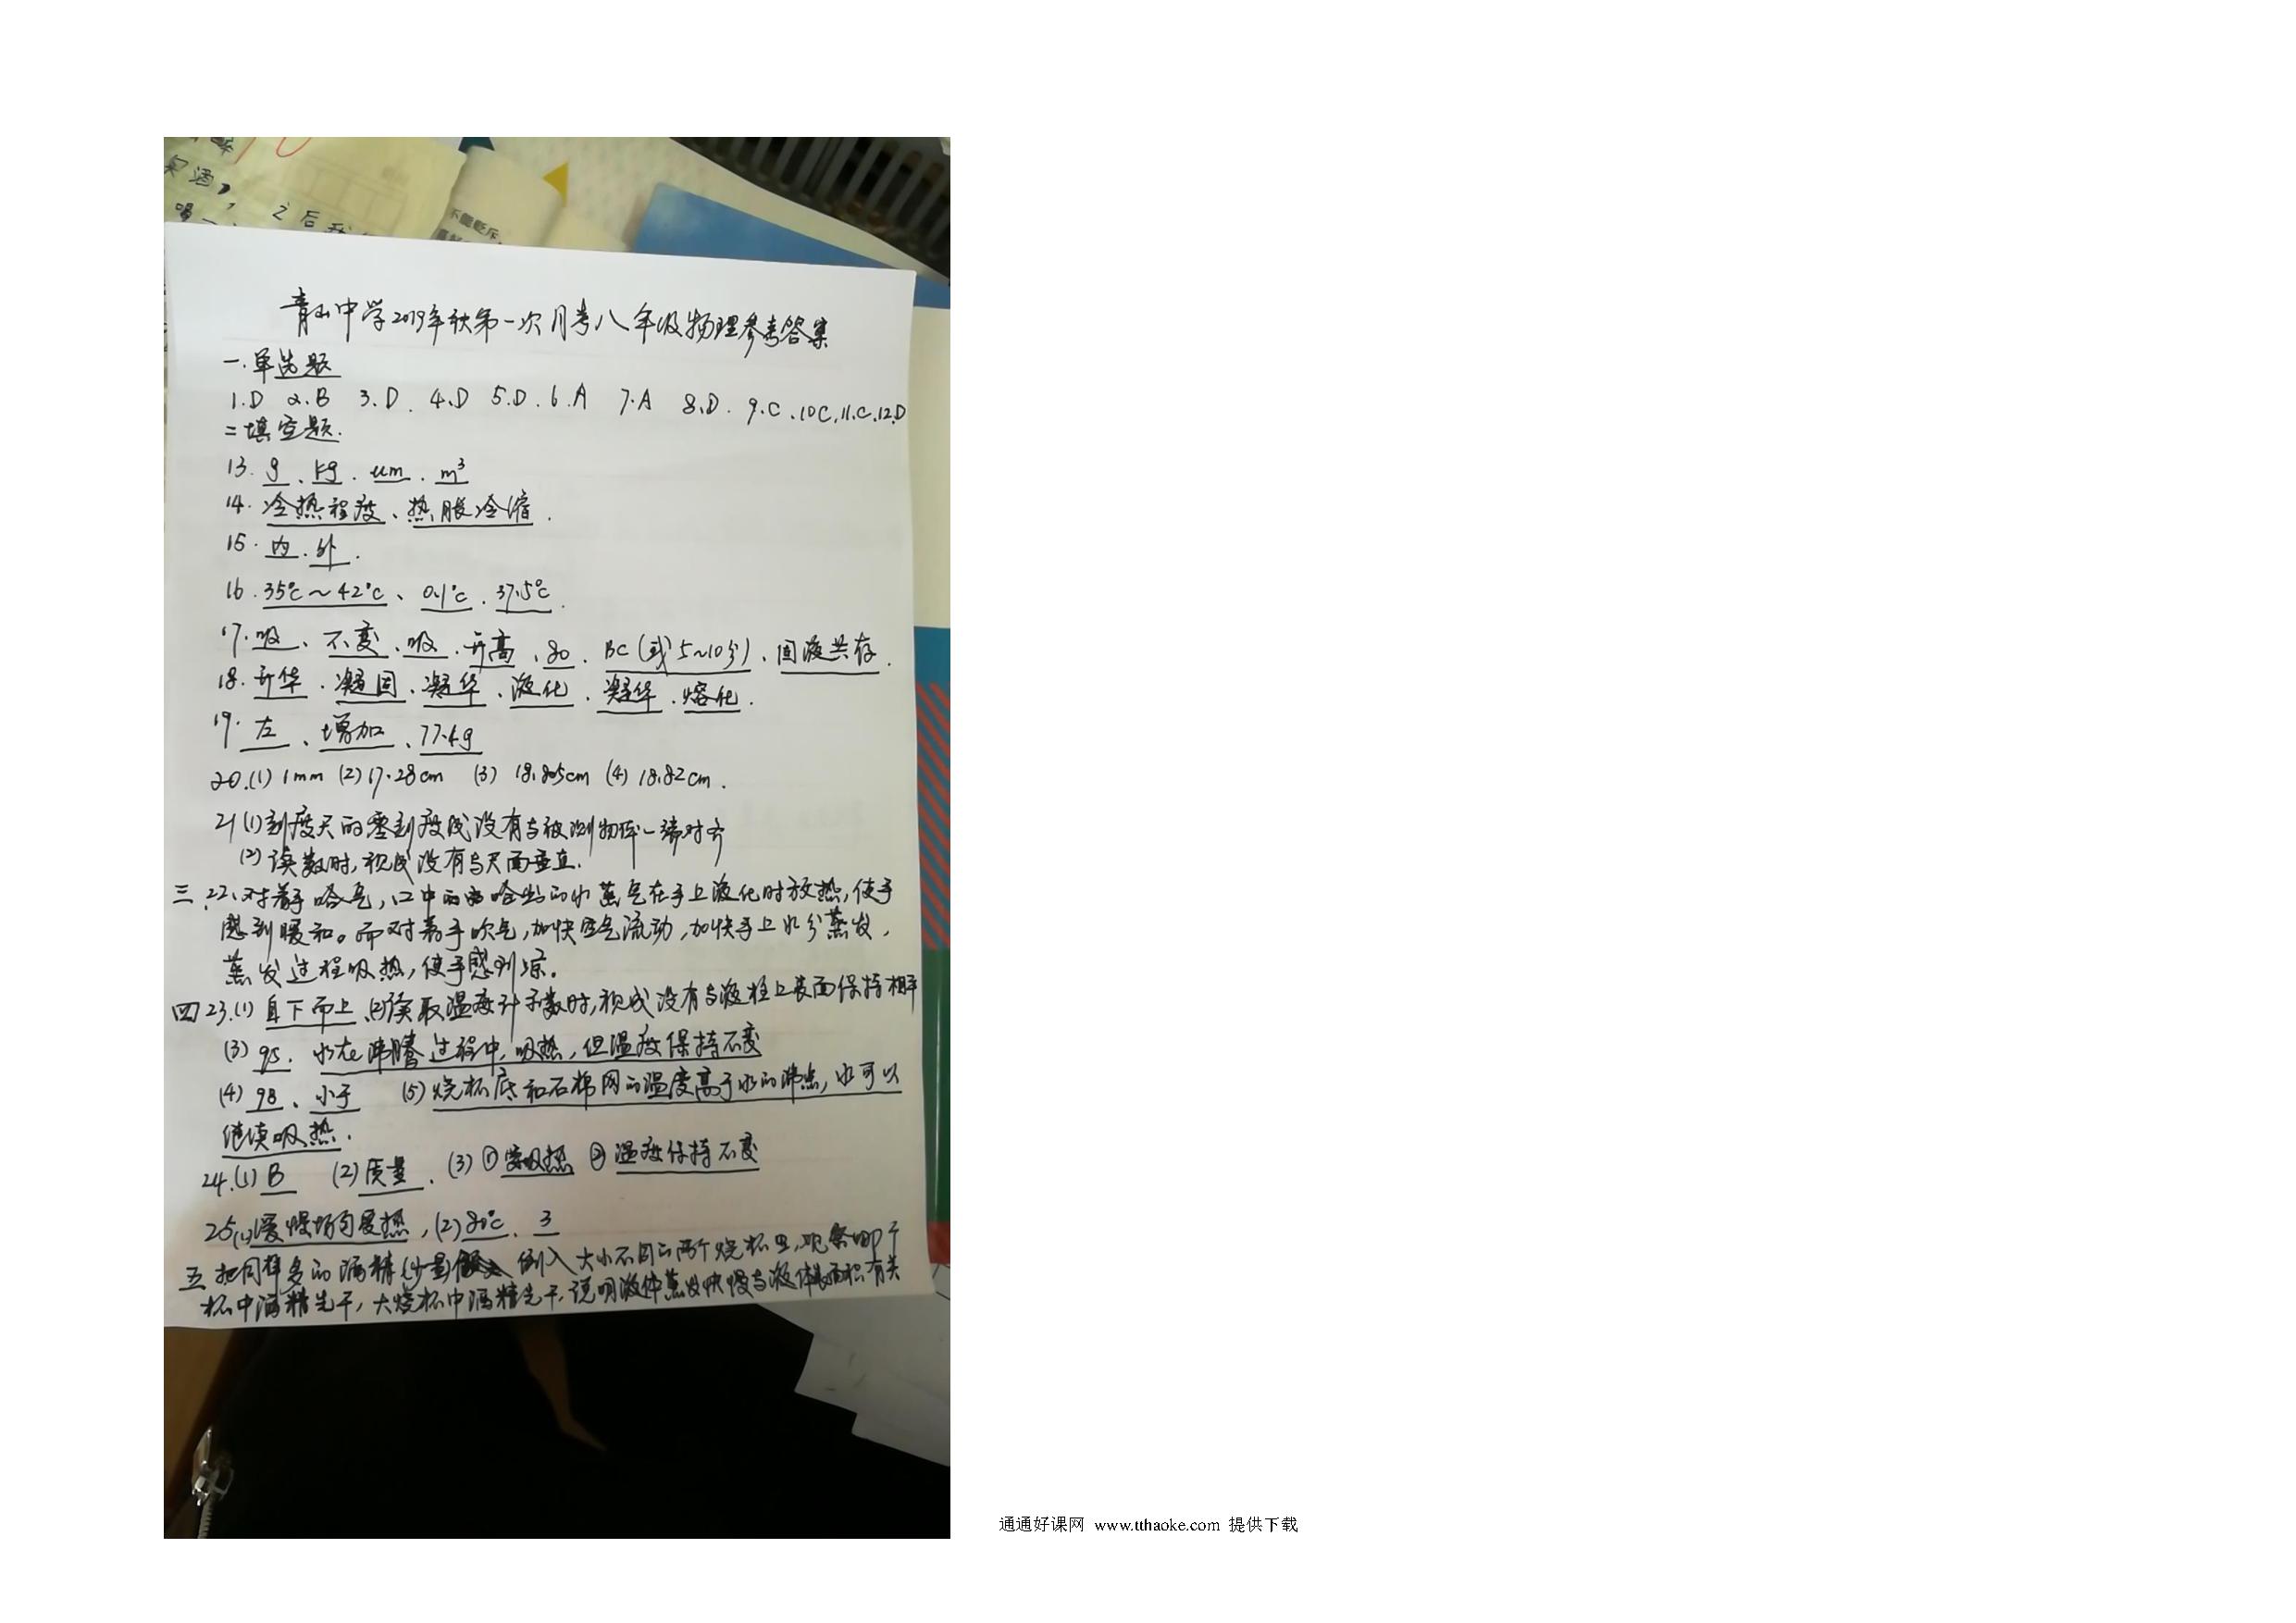 酒，
喝
之后
不能贬斥
青山中学2019年秋第一次月考八年级物理参考答案
一.单选题
1.D 2.B 3.D. 4.D 5.D. 6.A 7.A 8.D. 9.C、10C.11.C.12.D
二填空题.
13. g、kg. um. m³
14. 冷热程度、热胀冷缩.
15. 内.外.
16. 35℃～42℃、0.1℃.37.5℃.
17.吸、不变.吸.升高、80. BC(或5~10分)、固液共存.
18.升华.凝固.凝华、液化.凝华.熔化.
19. 左、增加、77.4g
20.(1)1mm (2)17.28cm (3) 18.805cm (4) 18.82cm.
21(1)刻度尺的零刻度线没有与被测物体一端对齐
(2) 读数时,视线没有与尺面垂直.
三.22、对着手哈气,口中哈出的水蒸气在手上液化时放热,使手
感到暖和。而对着手吹气,加快空气流动,加快手上水分蒸发,
蒸发过程吸热,使手感到凉。
四23.(1) 自下而上、(2)读取温度计示数时,视线没有与液柱上表面保持相平
(3) 95. 水在沸腾过程中,吸热,但温度保持不变
(4) 98、小于 (5) 烧杯底和石棉网的温度高于水的沸点,水可以
继续吸热.
24.(1) B (2)质量. (3)①要吸热 ②温度保持不变
25(1)缓慢均匀受热,(2)80℃、3
五 把同样多的酒精(少量)倒入大小不同的两个烧杯里,观察哪个
杯中酒精先干,大烧杯中酒精先干,说明液体蒸发快慢与液体表面积有关
通通好课网 www.tthaoke.com 提供下载